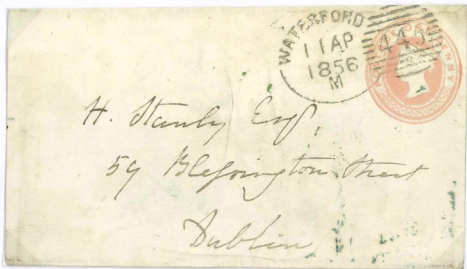 WATERFORD
11 AP
1856
M
44
PENNY
H. Stanly Esq.
59 Blessington Street
Dublin